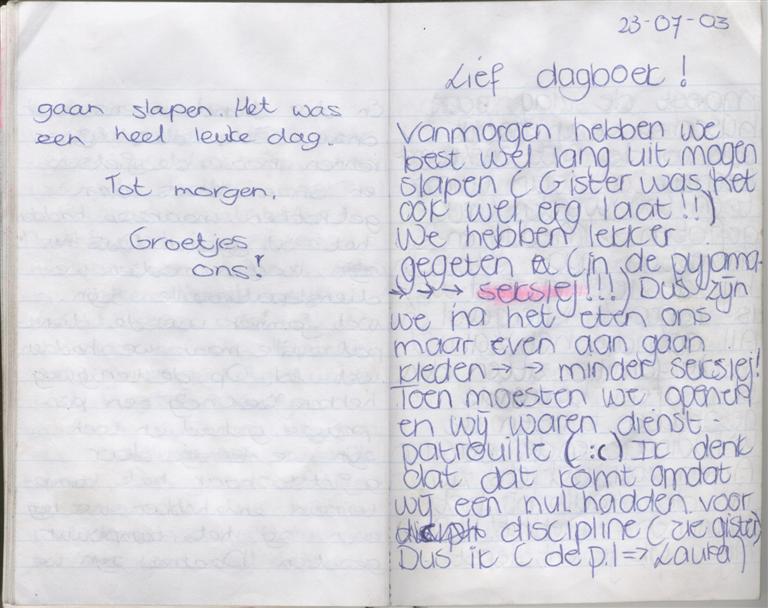 gaan slapen. Het was
een heel leuke dag.
Tot morgen.
Groetjes
ons!
23-07-03
Lief dagboek!
Vanmorgen hebben we
best wel lang uit mogen
slapen (Gister was het
ook wel erg laat!!)
We hebben lekker
gegeten & (in de pyjama
→ → → seksiej!!!) Dus zijn
we na het eten ons
maar even aan gaan
kleden → → minder seksiej!
Toen moesten we openen
en wij waren dienst-
patrouille (:c) Ik denk
dat dat komt omdat
wij een nul hadden voor
discipline (zie gister)
Dus ik (de p.l => Laura)